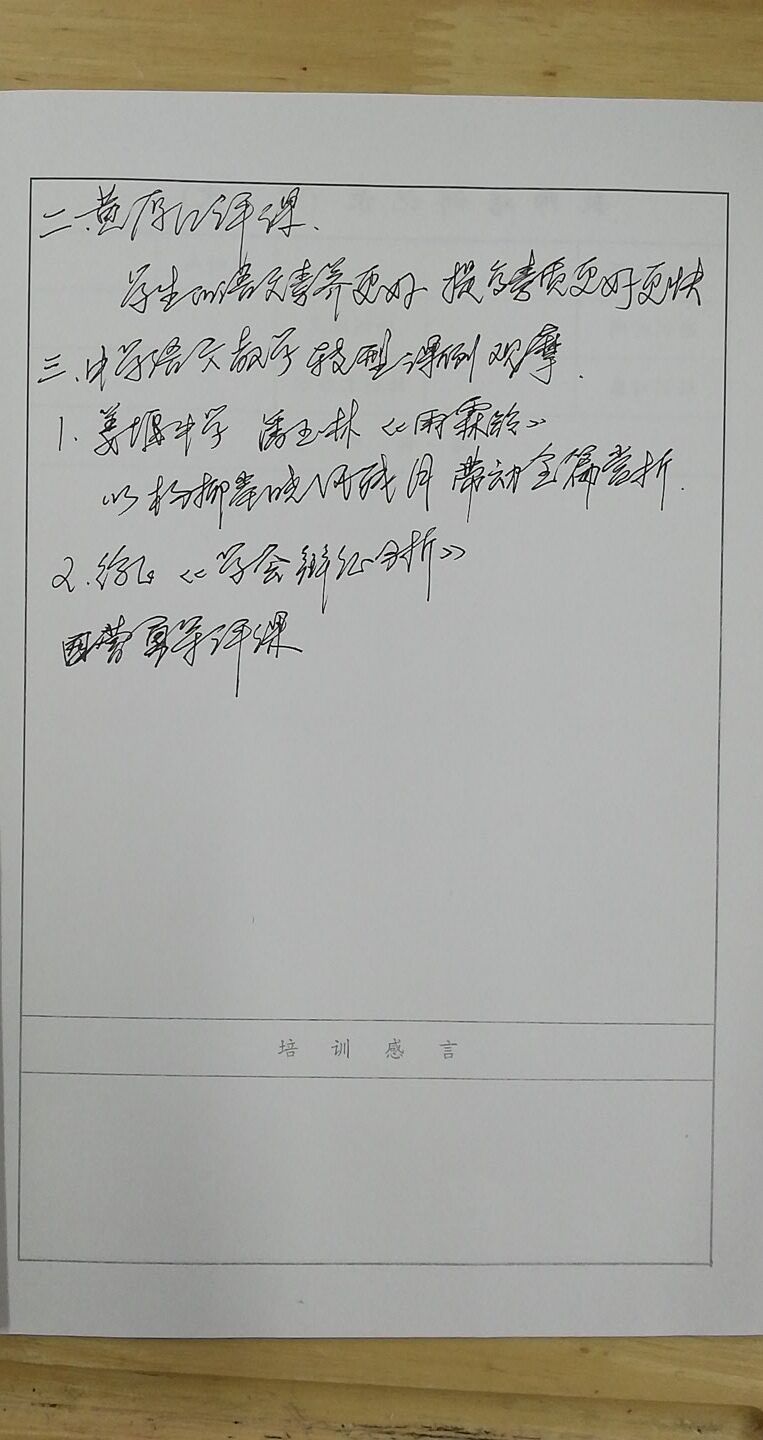 二.黄厚江评课.
学生的语文素养更好 提高素质更好更快
三.中学语文教学转型课例观摩.
1.姜堰中学 潘玉林 《雨霖铃》
以杨柳岸晓风残月 带动全篇赏析.
2. 《学会辩证分析》
评课
培训感言